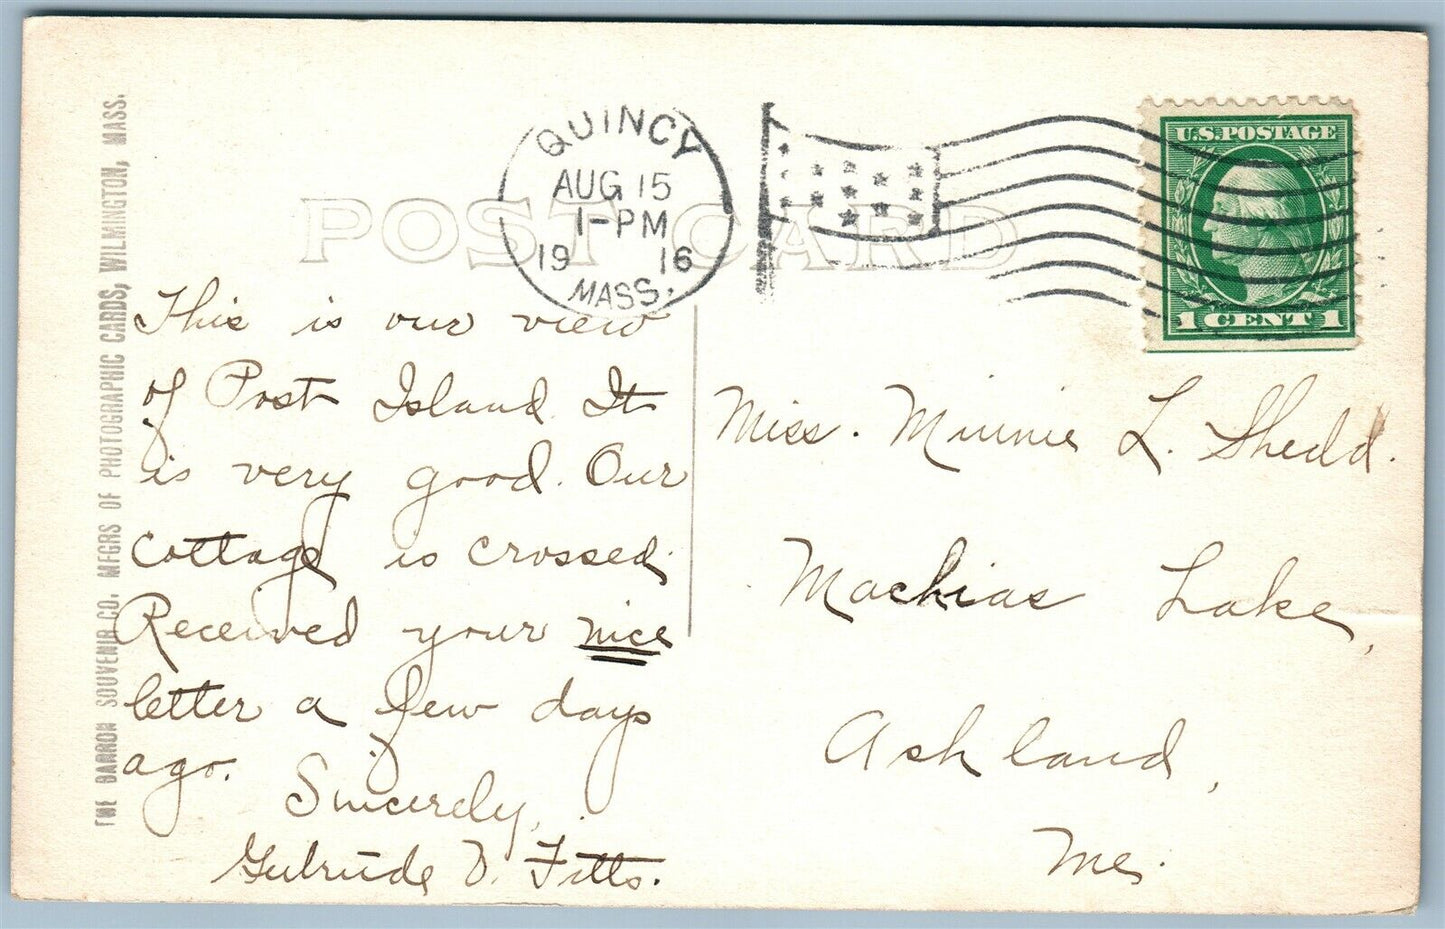 THE BARRON SOUVENIR CO. MFGRS OF PHOTOGRAPHIC CARDS, WILMINGTON, MASS.
POST CARD
QUINCY
AUG 15
1-PM
1916
MASS.
U.S. POSTAGE
1 CENT 1
This is our view
of Post Island. It
is very good. Our
cottage is crossed.
Received your nice
letter a few days
ago.
Sincerely,
Gertrude D. Fitts.
Miss. Minnie L. Shedd.
Machias Lake,
Ashland,
Me.